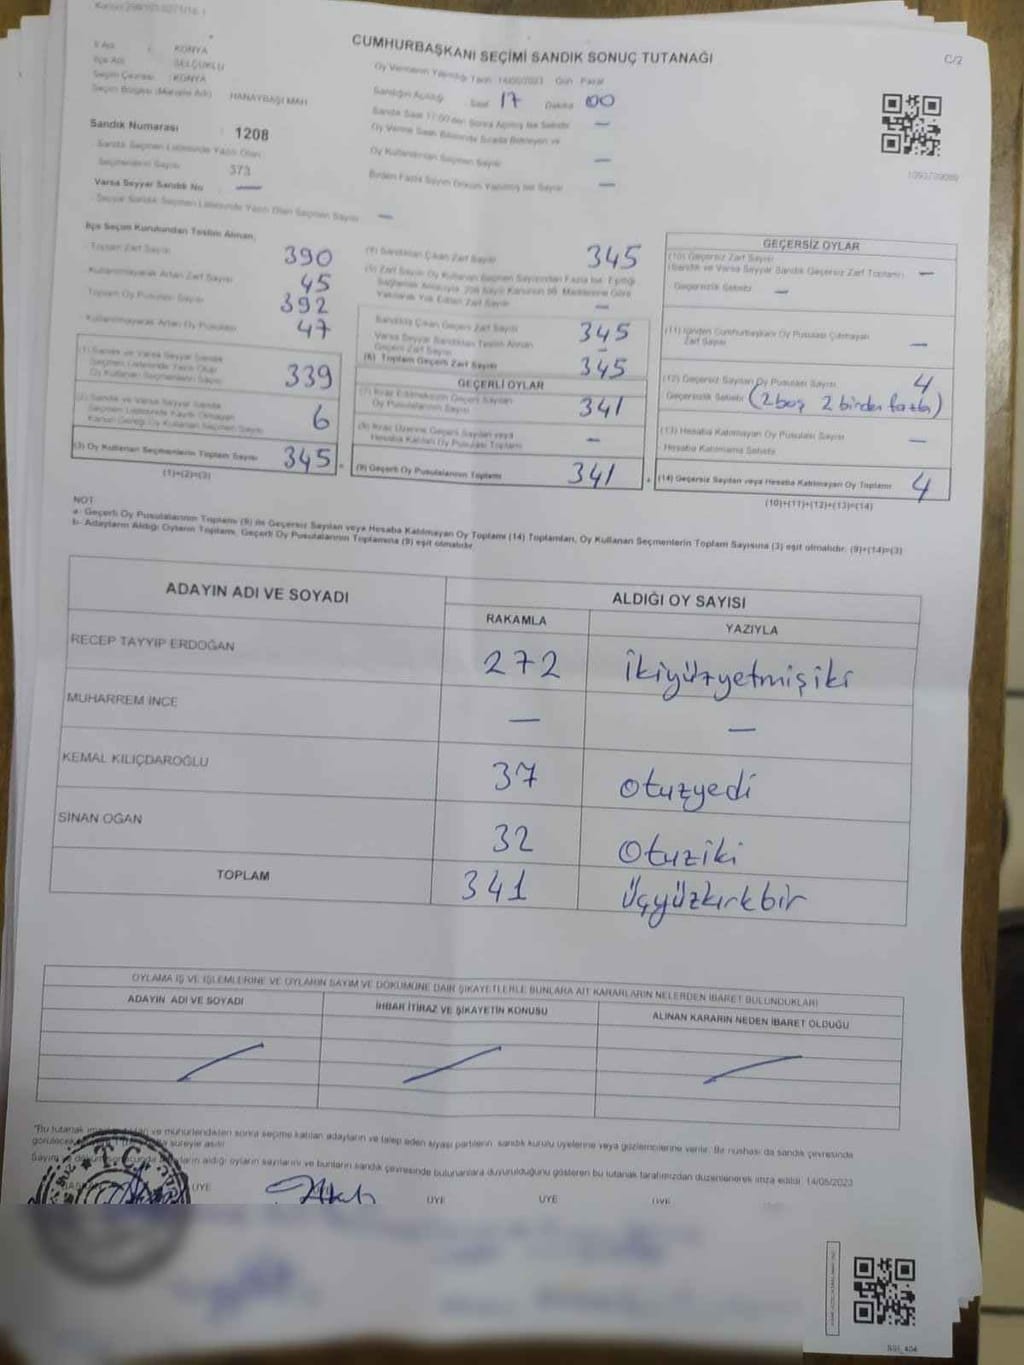 CUMHURBAŞKANI SEÇİMİ SANDIK SONUÇ TUTANAĞI
C/2
İl Adı : KONYA
İlçe Adı : SELÇUKLU
Seçim Çevresi : KONYA
Seçim Bölgesi (Mahalle Adı) : HANAYBAŞI MAH
Oy Vermenin Yapıldığı Tarih 14/05/2023 Gün Pazar
Sandığın Açıldığı Saat 17 Dakika 00
Sandık Numarası : 1208
Sandık Seçmen Listesinde Yazılı Olan
Seçmenlerin Sayısı 373
Varsa Seyyar Sandık No —
Seyyar Sandık Seçmen Listesinde Yazılı Olan Seçmen Sayısı —
Oy Kullandırılan Seçmen Sayısı —
Birden Fazla Sayım Döküm Yapılmış ise Sayısı —
İlçe Seçim Kurulundan Teslim Alınan;
Toplam Zarf Sayısı 390
Kullanılmayarak Artan Zarf Sayısı 45
Toplam Oy Pusulası Sayısı 392
Kullanılmayarak Artan Oy Pusulası 47
(1) Sandık ve Varsa Seyyar Sandık
Seçmen Listesinde Yazılı Olup
Oy Kullanan Seçmenlerin Sayısı 339
(2) Sandık ve Varsa Seyyar Sandık
Seçmen Listesinde Kayıtlı Olmayan
Kanun Gereği Oy Kullanan Seçmen Sayısı 6
(3) Oy Kullanan Seçmenlerin Toplam Sayısı 345
(1)+(2)=(3)
Sandıktan Çıkan Zarf Sayısı 345
Yakılarak Yok Edilen Zarf Sayısı —
Sandıkta Çıkan Geçerli Zarf Sayısı 345
Varsa Seyyar Sandıktan Teslim Alınan
Geçerli Zarf Sayısı -
(6) Toplam Geçerli Zarf Sayısı 345
GEÇERLİ OYLAR
(7) İtiraz Edilmeksizin Geçerli Sayılan
Oy Pusulalarının Sayısı 341
(8) İtiraz Üzerine Geçerli Sayılan veya
Hesaba Katılan Oy Pusulası Toplamı —
(9) Geçerli Oy Pusulalarının Toplamı 341
GEÇERSİZ OYLAR
(10) Geçersiz Zarf Sayısı
(Sandık ve Varsa Seyyar Sandık Geçersiz Zarf Toplamı) —
Geçersizlik Sebebi —
(11) İçinden Cumhurbaşkanı Oy Pusulası Çıkmayan
Zarf Sayısı —
(12) Geçersiz Sayılan Oy Pusulası Sayısı 4
Geçersizlik Sebebi (2 boş 2 birden fazla)
(13) Hesaba Katılmayan Oy Pusulası Sayısı —
Hesaba Katılmama Sebebi
(14) Geçersiz Sayılan veya Hesaba Katılmayan Oy Toplamı 4
(10)+(11)+(12)+(13)=(14)
NOT:
a- Geçerli Oy Pusulalarının Toplamı (9) ile Geçersiz Sayılan veya Hesaba Katılmayan Oy Toplamı (14) Toplamları, Oy Kullanan Seçmenlerin Toplam Sayısına (3) eşit olmalıdır. (9)+(14)=(3)
b- Adayların Aldığı Oyların Toplamı, Geçerli Oy Pusulalarının Toplamına (9) eşit olmalıdır.
ADAYIN ADI VE SOYADI
ALDIĞI OY SAYISI
RAKAMLA YAZIYLA
RECEP TAYYİP ERDOĞAN 272 ikiyüzyetmişiki
MUHARREM İNCE — —
KEMAL KILIÇDAROĞLU 37 otuzyedi
SİNAN OĞAN 32 Otuziki
TOPLAM 341 Üçyüzkırkbir
OYLAMA İŞ VE İŞLEMLERİNE VE OYLARIN SAYIM VE DÖKÜMÜNE DAİR ŞİKAYETLERLE BUNLARA AİT KARARLARIN NELERDEN İBARET BULUNDUKLARI
ADAYIN ADI VE SOYADI
İHBAR İTİRAZ VE ŞİKAYETİN KONUSU
ALINAN KARARIN NEDEN İBARET OLDUĞU
"Bu tutanak ve mühürlendikten sonra seçime katılan adayların ve talep eden siyasi partilerin sandık kurulu üyelerine veya gözlemcilerine verilir. Bir nüshası da sandık çevresinde
süreyle asılır.
aldığı oyların sayılarını ve bunların sandık çevresinde bulunanlara duyurulduğunu gösteren bu tutanak tarafımızdan düzenlenerek imza edildi. 14/05/2023
T.C.
ÜYE ÜYE ÜYE ÜYE